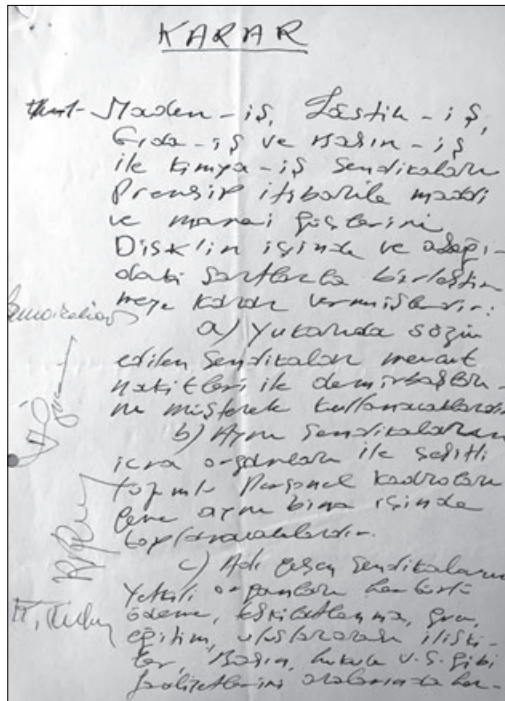 KARAR
Maden-iş, Lastik-iş,
Gıda-iş ve Basın-iş
ile Kimya-iş Sendikaları
Prensip itibarile maddi
ve manevi güçlerini
Disk'in içinde ve aşağı-
daki şartlarla birleştir
meye karar vermişlerdir:
a) Yukarıda sözü
edilen Sendikalar mevcut
nakitleri ile demirbaşları-
nı müşterek kullanacaklardır
b) Aynı Sendikaların
icra organları ile çeşitli
Personel kadroları
aynı bina içinde
toplanacaklardır.
c) Adı geçen Sendikaların
Yetkili organları her türlü
ödeme, teşkilatlanma, grev,
eğitim, uluslararası ilişki-
ler, Basın, hukuk v.s. gibi
faaliyetlerini aralarında her-